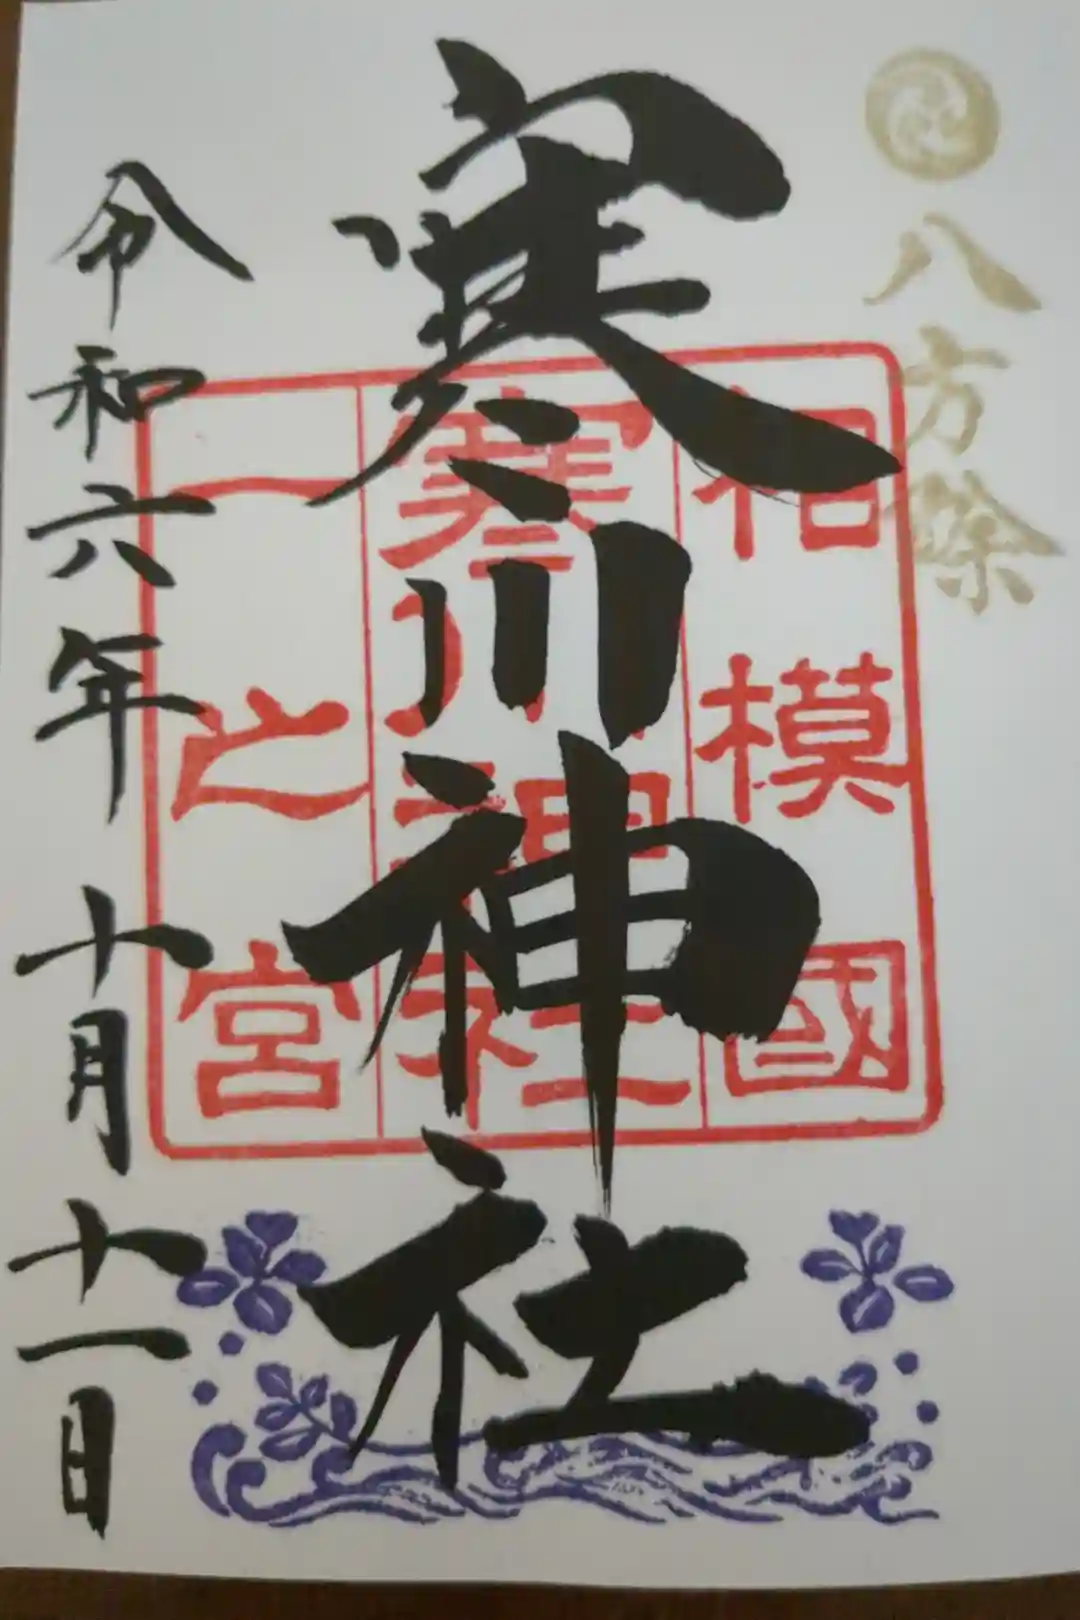 八方除
相模國
寒川神社
一之宮
寒川神社
令和六年十月十一日